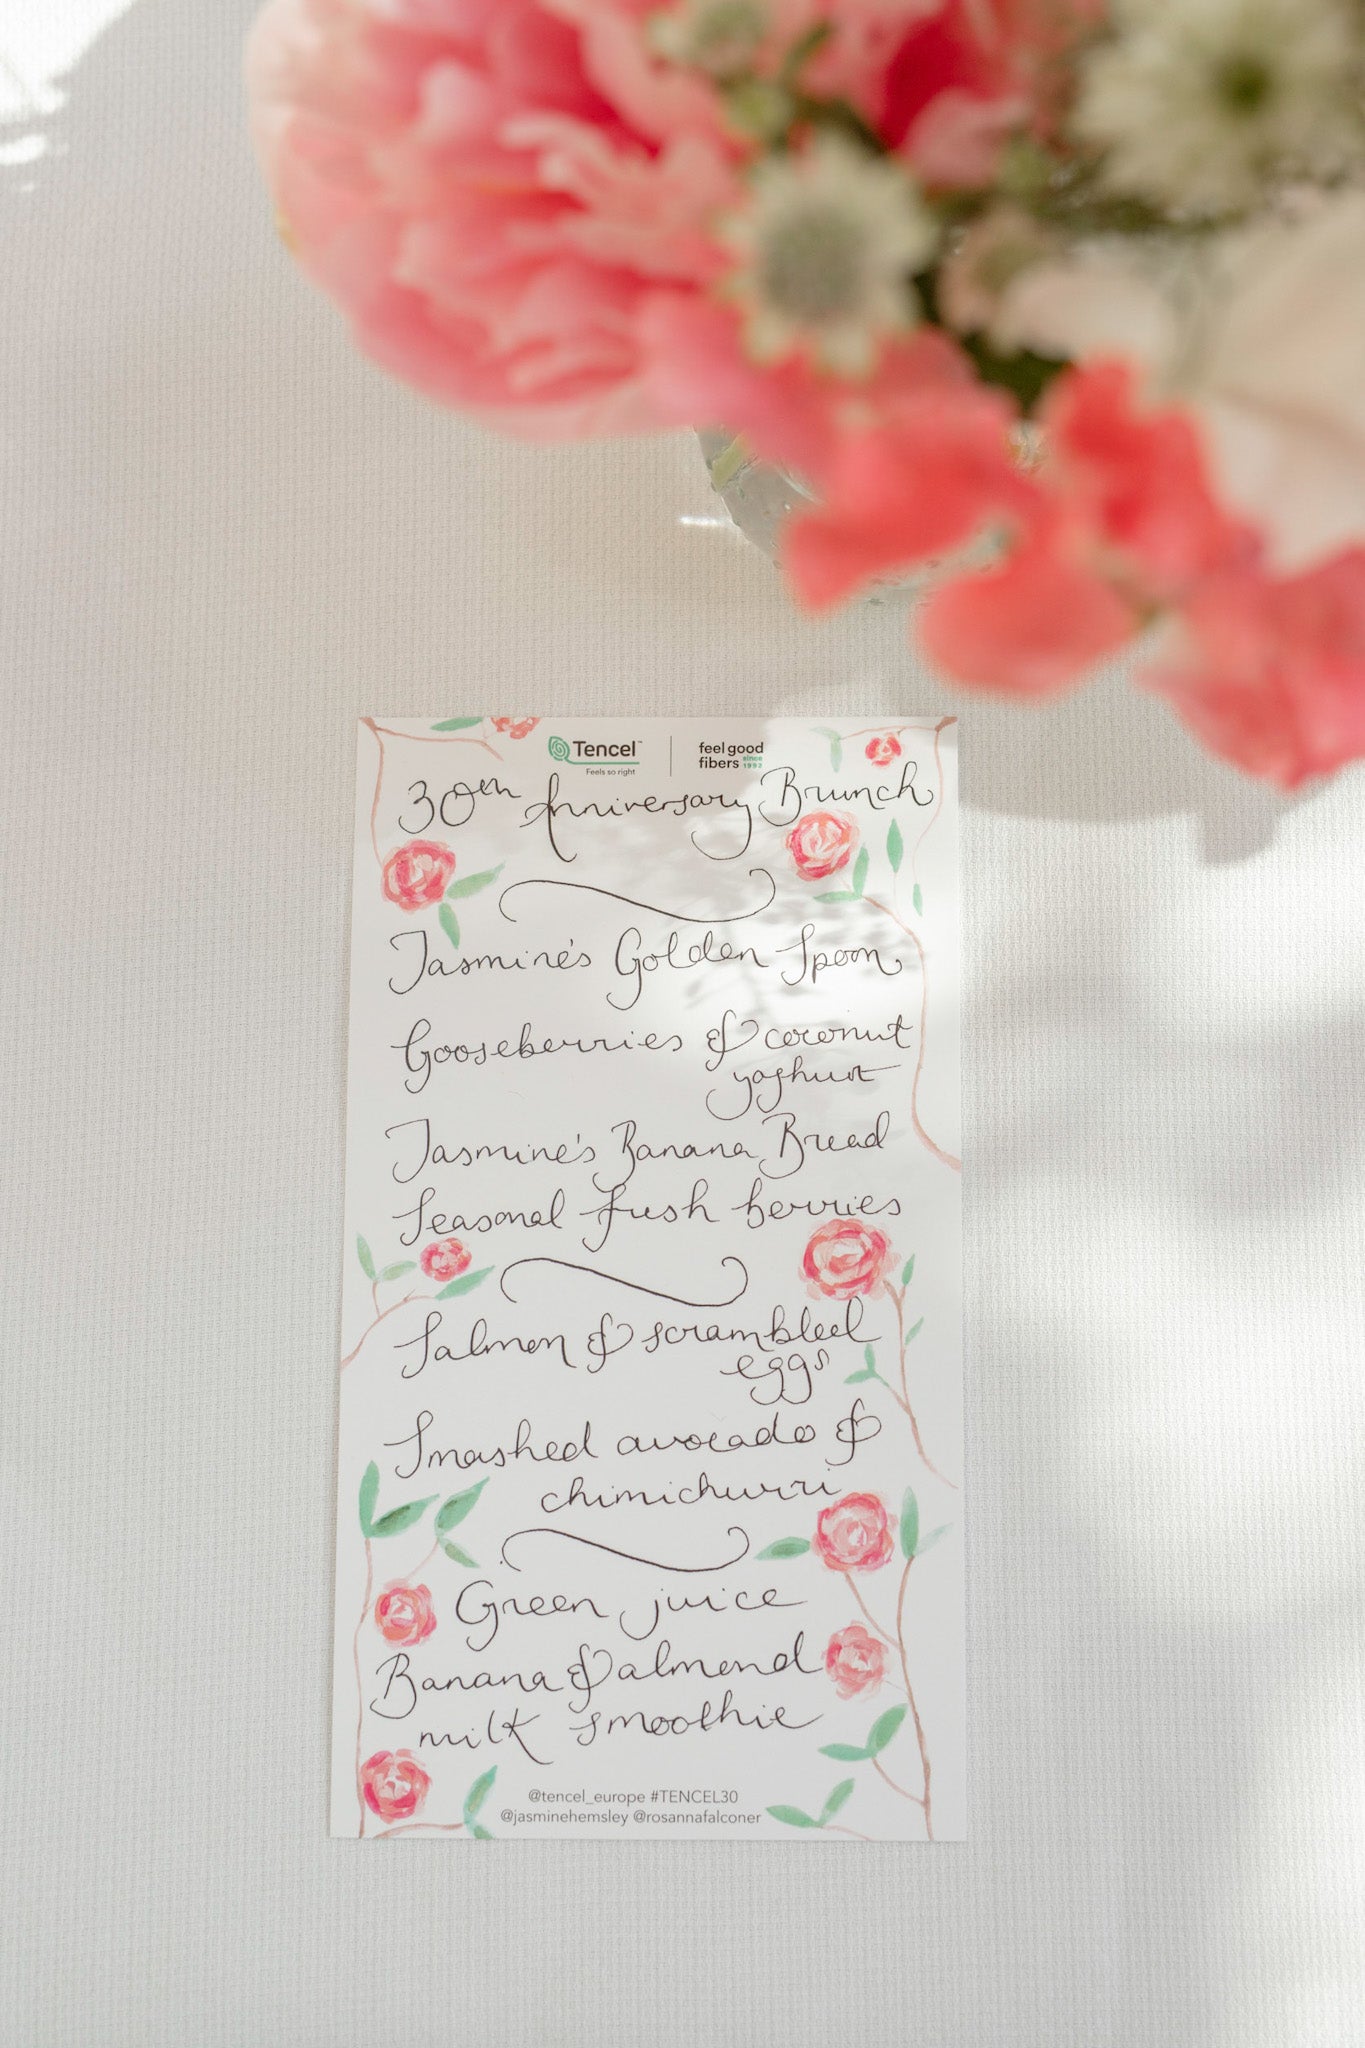 Tencel™
Feels so right
feel good
fibers since 1992
30th Anniversary Brunch
Jasmine's Golden Spoon
Gooseberries & coconut
yoghurt
Jasmine's Banana Bread
Seasonal fresh berries
Salmon & scrambled
eggs
Smashed avocado &
chimichurri
Green juice
Banana & almond
milk smoothie
@tencel_europe #TENCEL30
@jasminehemsley @rosannafalconer